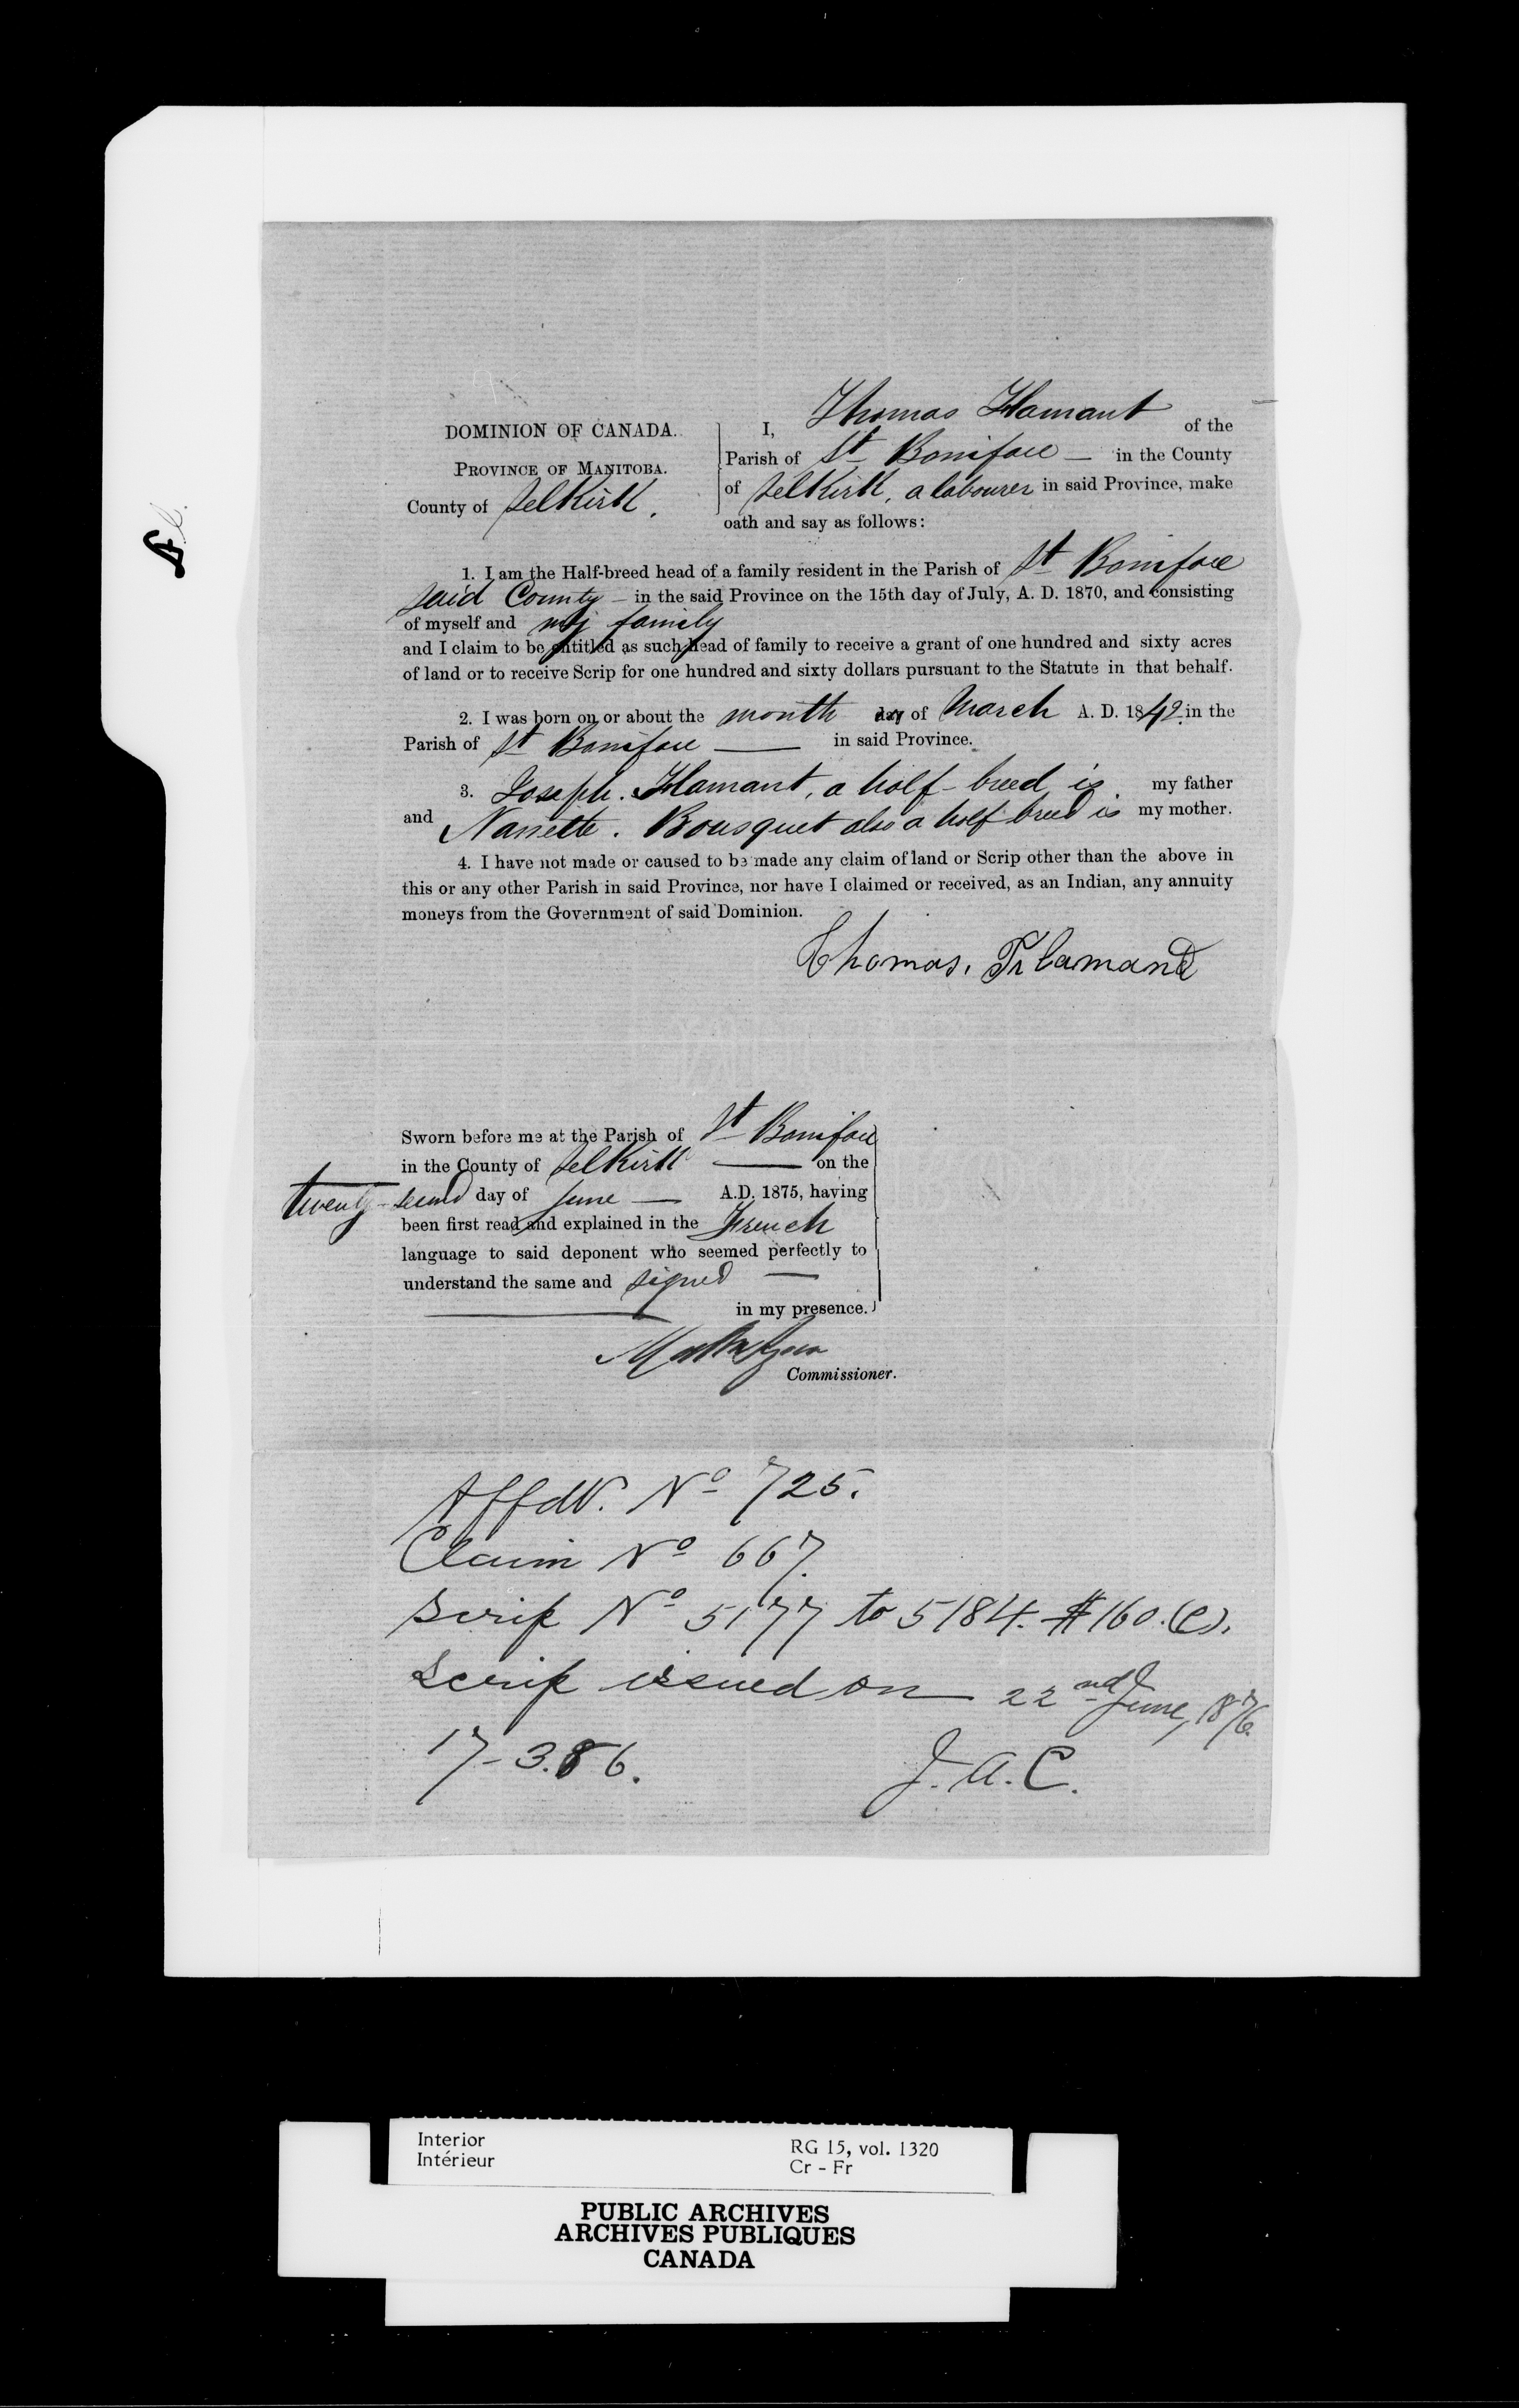 DOMINION OF CANADA.
PROVINCE OF MANITOBA.
County of Selkirk.
I, Thomas Flamant of the
Parish of St Boniface — in the County
of Selkirk, a labourer in said Province, make
oath and say as follows:
1. I am the Half-breed head of a family resident in the Parish of St Boniface
said County — in the said Province on the 15th day of July, A. D. 1870, and consisting
of myself and my family
and I claim to be entitled as such head of family to receive a grant of one hundred and sixty acres
of land or to receive Scrip for one hundred and sixty dollars pursuant to the Statute in that behalf.
2. I was born on or about the month day of March A. D. 1842 in the
Parish of St Boniface — in said Province.
3. Joseph. Flamant, a half-breed is my father
and Nanette. Bousquet also a half breed is my mother.
4. I have not made or caused to be made any claim of land or Scrip other than the above in
this or any other Parish in said Province, nor have I claimed or received, as an Indian, any annuity
moneys from the Government of said Dominion.
Thomas. Flamand
Sworn before me at the Parish of St Boniface
in the County of Selkirk — on the
twenty-second day of June — A.D. 1875, having
been first read and explained in the French
language to said deponent who seemed perfectly to
understand the same and signed —
in my presence.
Commissioner.
Affdvt. No 725.
Claim No 667.
Scrip No 5177 to 5184. $160.(C).
Scrip issued on 22nd June, 1876.
17-3.86. J.A.C.
Interior
Intérieur
RG 15, vol. 1320
Cr - Fr
PUBLIC ARCHIVES
ARCHIVES PUBLIQUES
CANADA